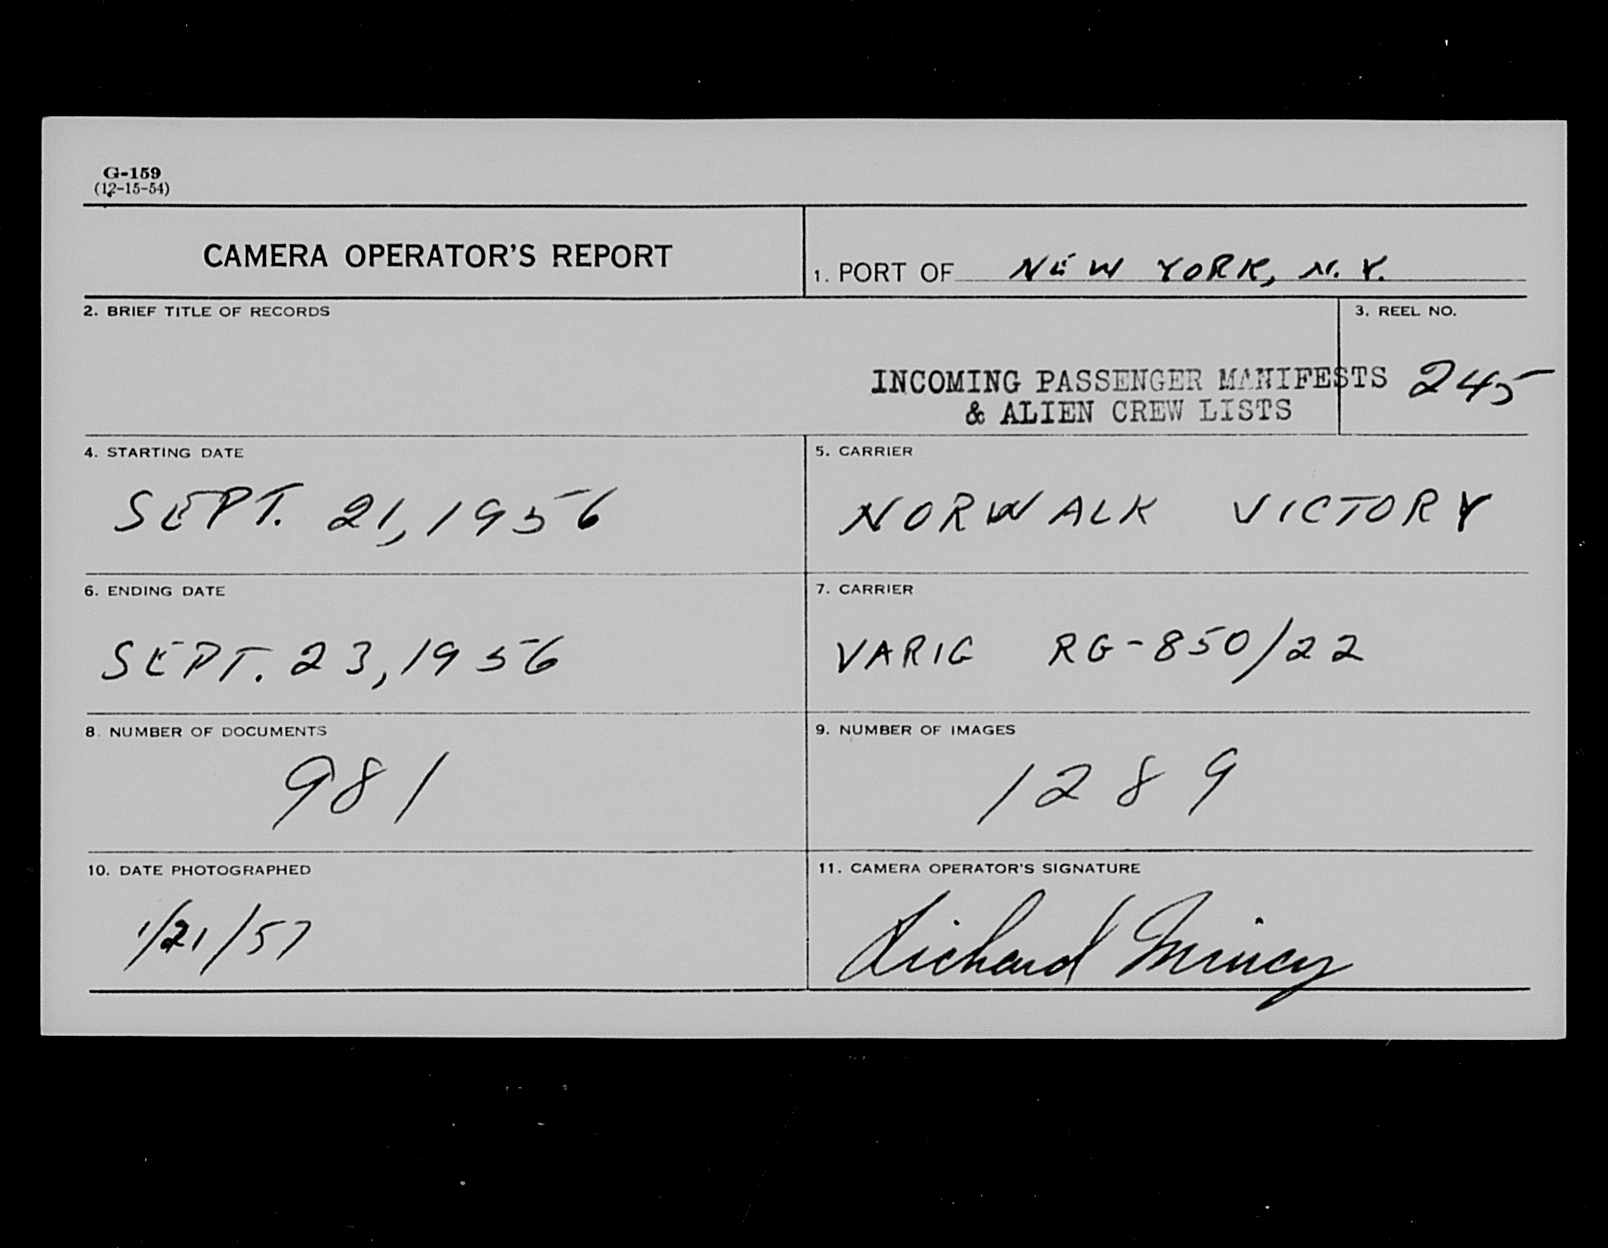 G-159
(12-15-54)
CAMERA OPERATOR'S REPORT
1. PORT OF NEW YORK, N.Y.
2. BRIEF TITLE OF RECORDS
INCOMING PASSENGER MANIFESTS
& ALIEN CREW LISTS
3. REEL NO.
245
4. STARTING DATE
SEPT. 21, 1956
5. CARRIER
NORWALK VICTORY
6. ENDING DATE
SEPT. 23, 1956
7. CARRIER
VARIG RG-850/22
8. NUMBER OF DOCUMENTS
981
9. NUMBER OF IMAGES
1289
10. DATE PHOTOGRAPHED
1/21/57
11. CAMERA OPERATOR'S SIGNATURE
Richard Mincy